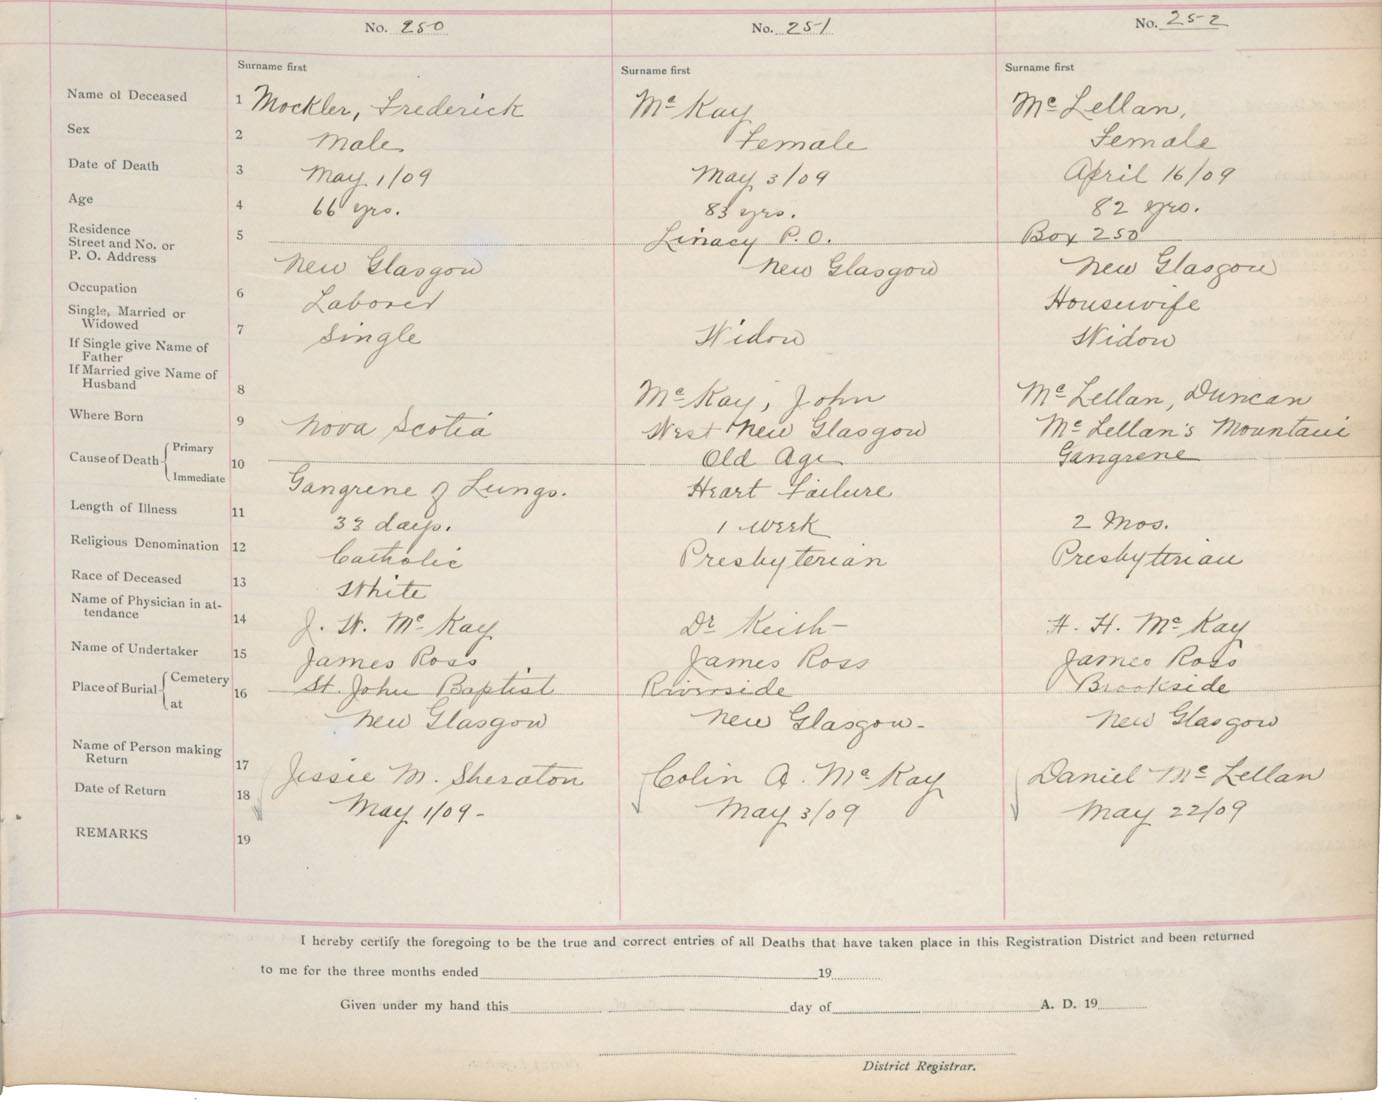 No. 250 No. 251 No. 252
Surname first Surname first Surname first
Name of Deceased 1 Mockler, Frederick McKay McLellan,
Sex 2 Male Female Female
Date of Death 3 May 1/09 May 3/09 April 16/09
Age 4 66 yrs. 83 yrs. 82 yrs.
Residence
Street and No. or 5 Linacy P.O. Box 250
P. O. Address New Glasgow New Glasgow New Glasgow
Occupation 6 Laborer Housewife
Single, Married or
Widowed 7 Single Widow Widow
If Single give Name of
Father
If Married give Name of
Husband 8 McKay, John McLellan, Duncan
Where Born 9 Nova Scotia West New Glasgow McLellan's Mountain
Cause of Death Primary 10 Old Age Gangrene
Immediate Gangrene of Lungs. Heart Failure
Length of Illness 11 33 days. 1 week 2 Mos.
Religious Denomination 12 Catholic Presbyterian Presbyterian
Race of Deceased 13 White
Name of Physician in at-
tendance 14 J. W. McKay Dr Keith- H. H. McKay
Name of Undertaker 15 James Ross James Ross James Ross
Place of Burial Cemetery 16 St. John Baptist Riverside Brookside
at New Glasgow New Glasgow- New Glasgow
Name of Person making
Return 17 Jessie M. Sheraton Colin A. McKay Daniel McLellan
Date of Return 18 May 1/09- May 3/09 May 22/09
REMARKS 19
I hereby certify the foregoing to be the true and correct entries of all Deaths that have taken place in this Registration District and been returned
to me for the three months ended 19
Given under my hand this day of A. D. 19
District Registrar.